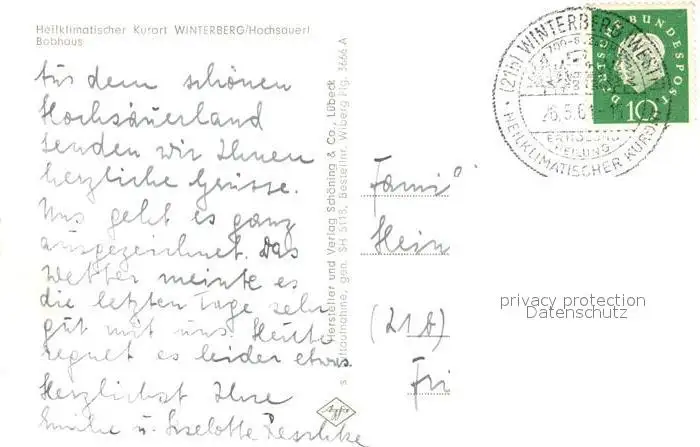 Heilklimatischer Kurort WINTERBERG/Hochsauerl
Bobhaus
Aus dem schönen
Hochsauerland
senden wir Ihnen
herzliche Grüsse.
Uns geht es ganz
ausgezeichnet. Das
Wetter meinte es
die letzten Tage sehr
gut mit uns. Heute
regnet es leider etwas.
Herzlichst Ihre
Emilie u. Liselotte
Hersteller und Verlag Schöning & Co., Lübeck
Luftaufnahme, gen. SH 5115, Bestellnr. Wiberg Plg. 3666 A
Agfa
Fami
Hein
(21b)
Fri
(21b) WINTERBERG (WESTF
HEILKLIMATISCHER KURORT
ERHOLUNG
HEILUNG
DEUTSCHE BUNDESPOST
10
privacy protection
Datenschutz